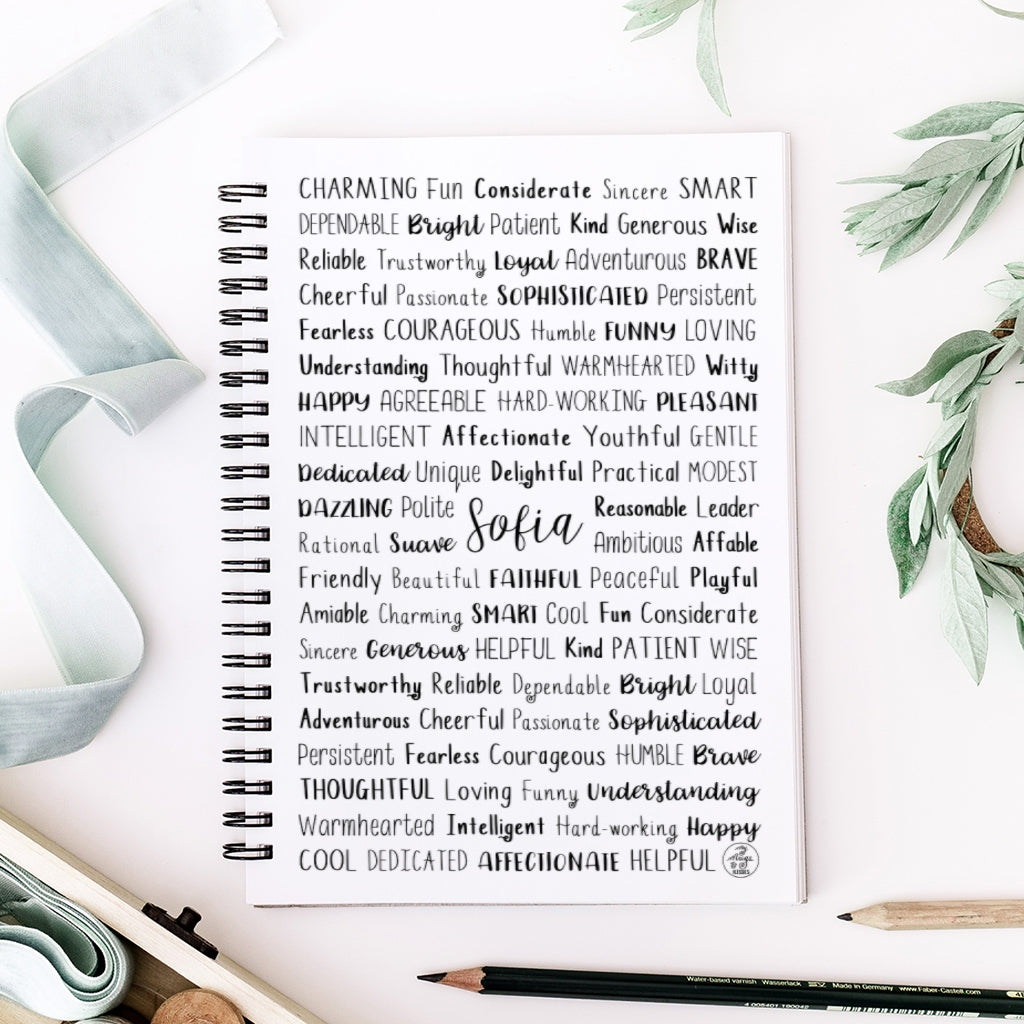 CHARMING Fun Considerate Sincere SMART
DEPENDABLE Bright Patient Kind Generous Wise
Reliable Trustworthy Loyal Adventurous BRAVE
Cheerful Passionate SOPHISTICATED Persistent
Fearless COURAGEOUS Humble FUNNY LOVING
Understanding Thoughtful WARMHEARTED Witty
HAPPY AGREEABLE HARD-WORKING PLEASANT
INTELLIGENT Affectionate Youthful GENTLE
Dedicated Unique Delightful Practical MODEST
DAZZLING Polite Reasonable Leader
Sofia
Rational Suave Ambitious Affable
Friendly Beautiful FAITHFUL Peaceful Playful
Amiable Charming SMART Cool Fun Considerate
Sincere Generous HELPFUL Kind PATIENT WISE
Trustworthy Reliable Dependable Bright Loyal
Adventurous Cheerful Passionate Sophisticated
Persistent Fearless Courageous HUMBLE Brave
THOUGHTFUL Loving Funny Understanding
Warmhearted Intelligent Hard-working Happy
COOL DEDICATED AFFECTIONATE HELPFUL
Water-based varnish Wasserlack Made in Germany www.Faber-Castell.com
4 005401 190042